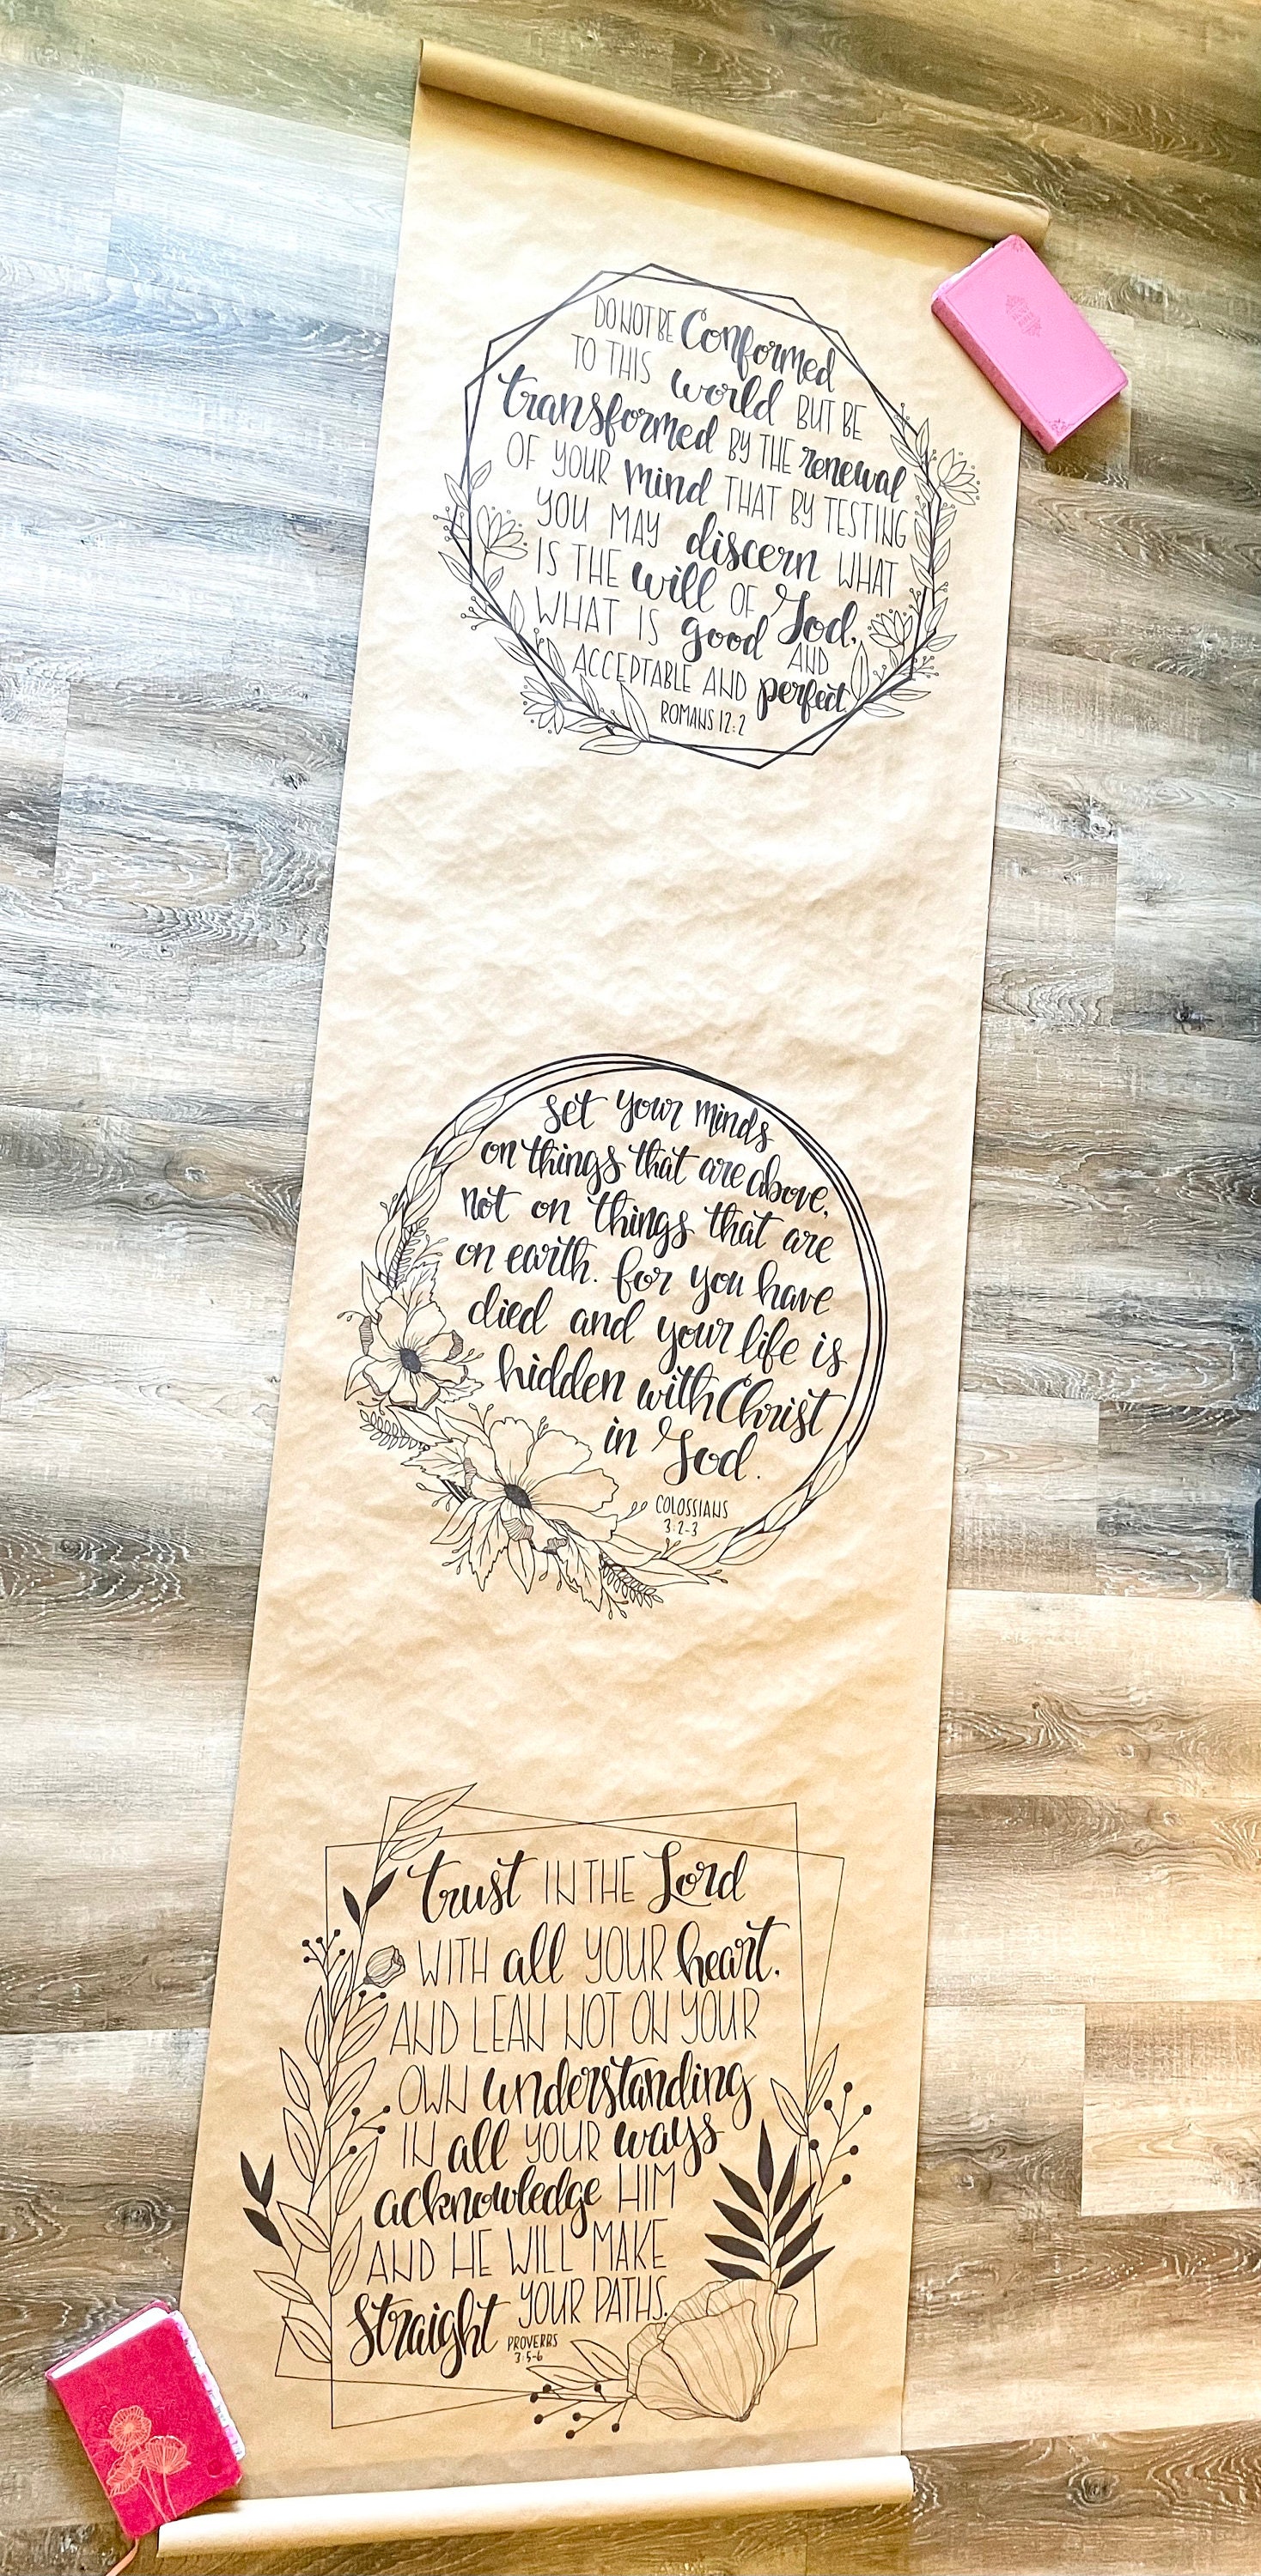 DO NOT BE Conformed
TO THIS world BUT BE
transformed BY THE renewal
OF YOUR mind THAT BY TESTING
YOU MAY discern WHAT
IS THE will OF God,
WHAT IS good AND
ACCEPTABLE AND perfect.
ROMANS 12:2
set your minds
on things that are above,
not on things that are
on earth. for you have
died and your life is
hidden with Christ
in God.
COLOSSIANS
3:2-3
trust IN THE Lord
WITH all YOUR heart.
AND LEAN NOT ON YOUR
OWN understanding
IN all YOUR ways
acknowledge HIM
AND HE WILL MAKE
Straight YOUR PATHS.
PROVERBS
3:5-6